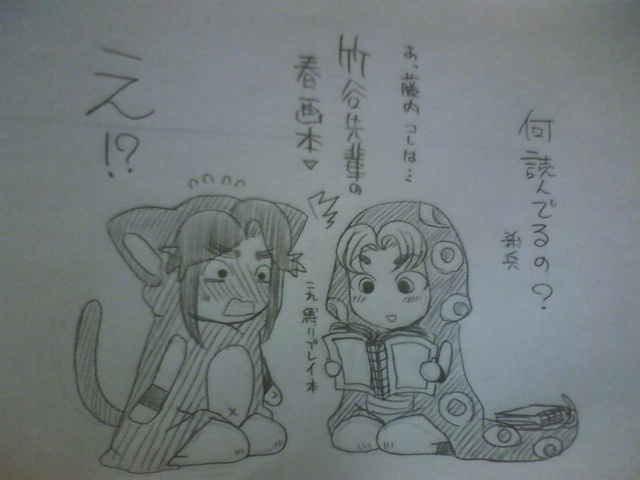 何読んでるの?
孫兵
あ、藤内コレは…
竹谷先輩の
春画本♥
これ縛りプレイ本
え!?